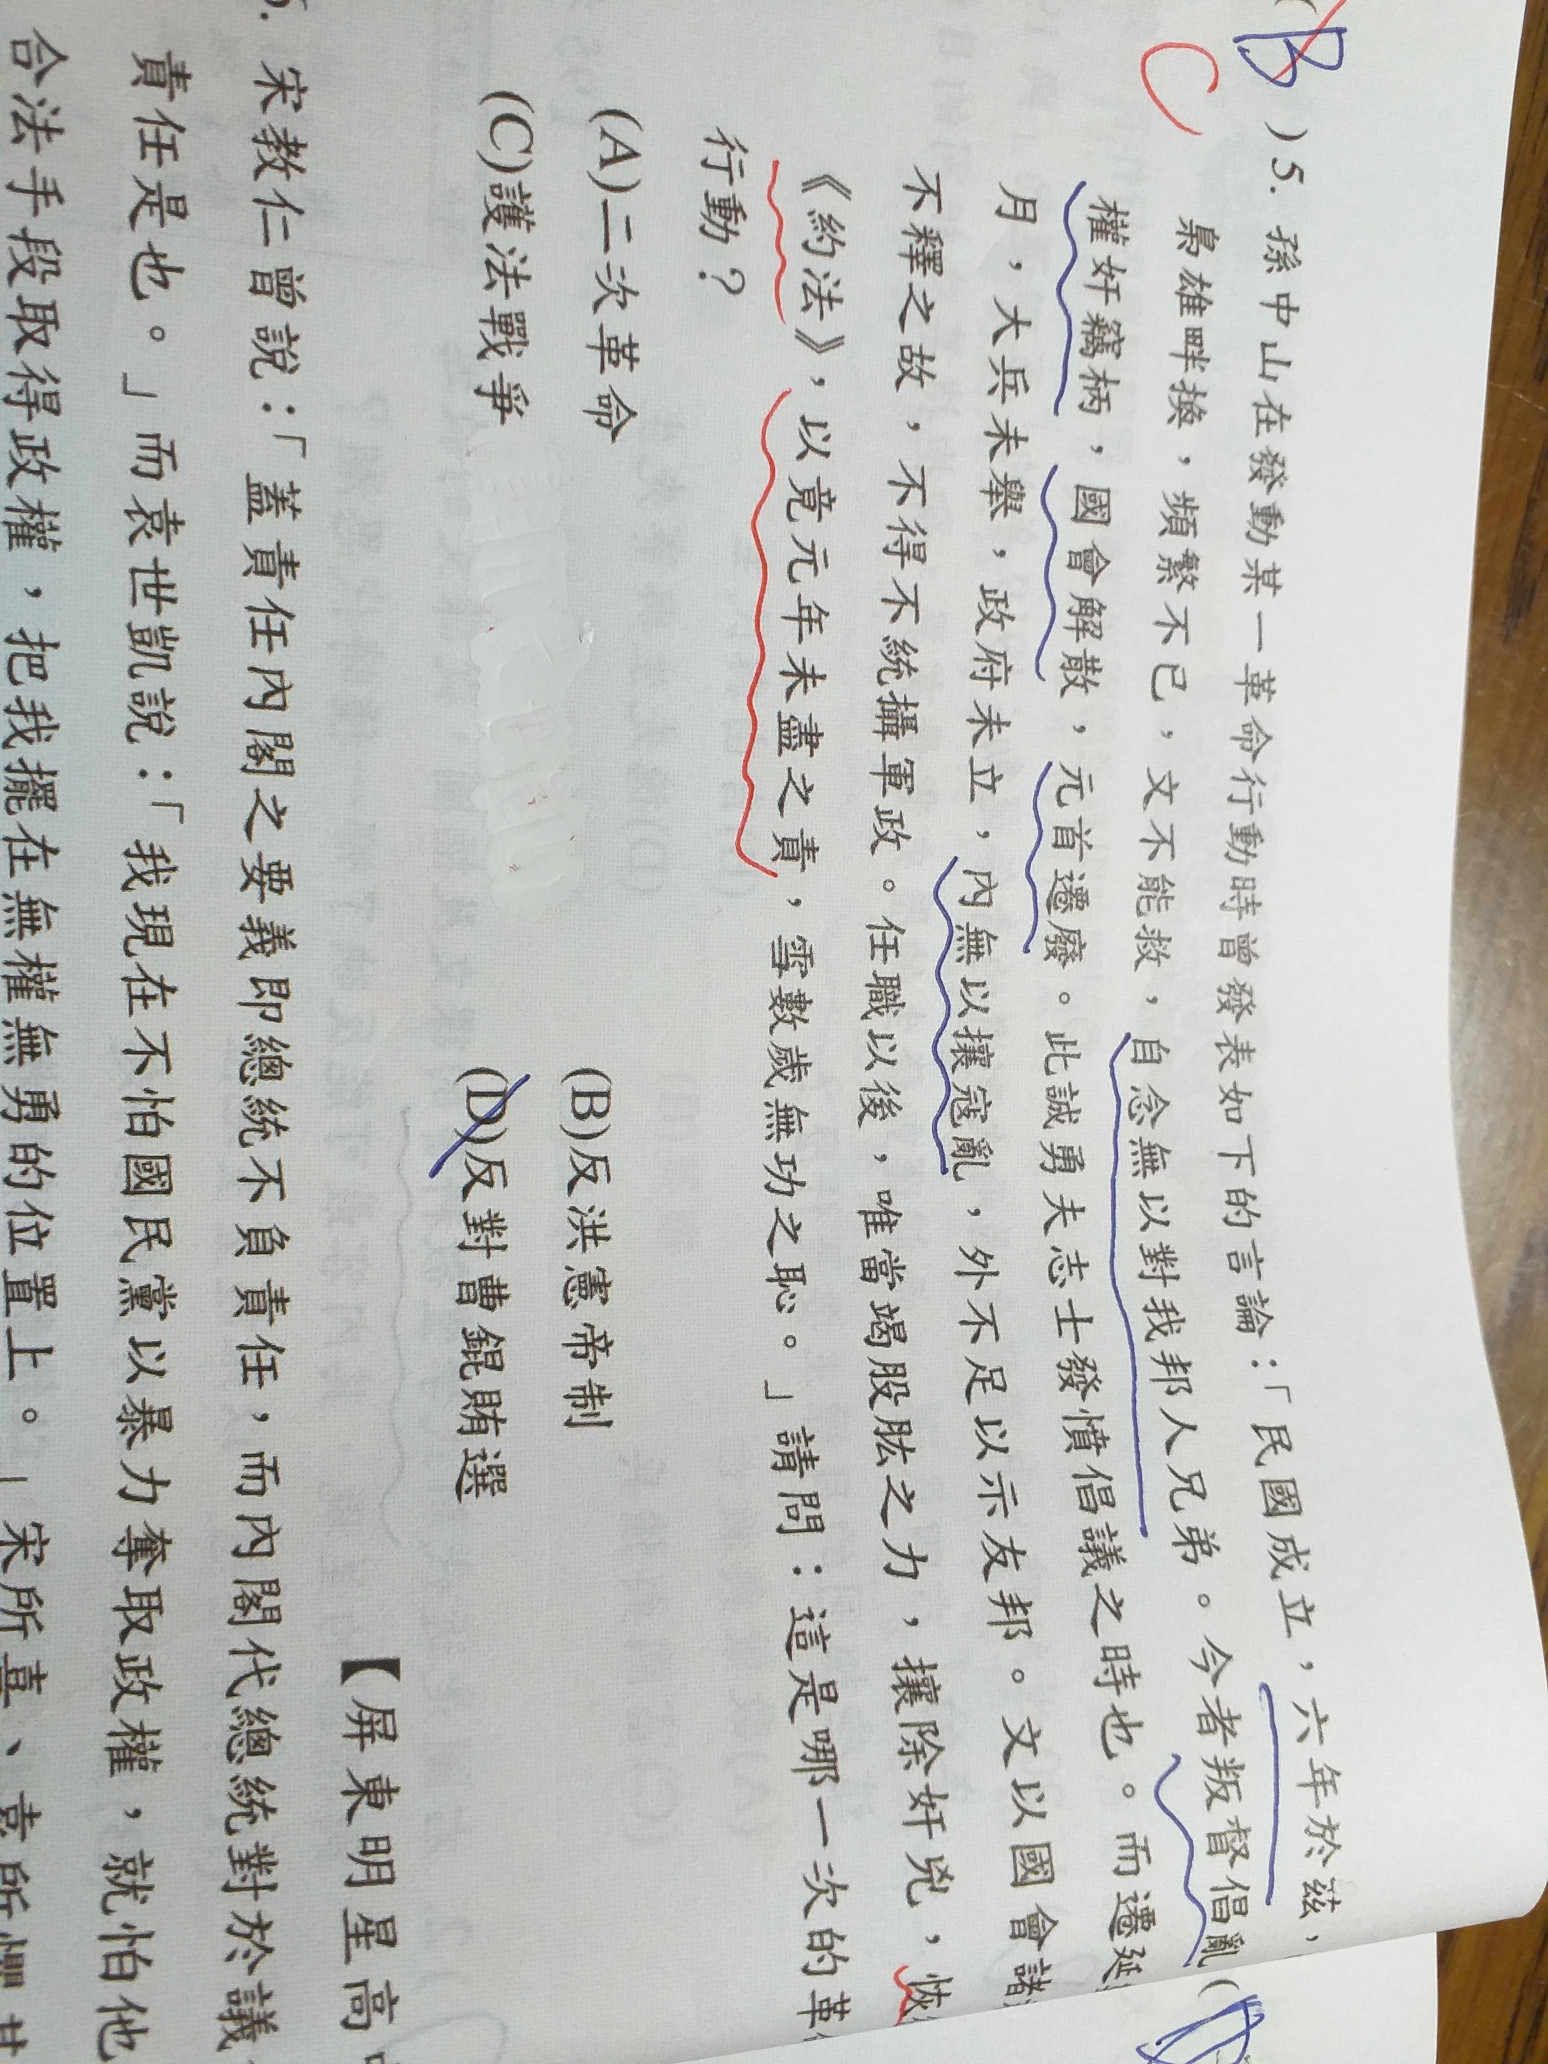 (B)5. 孫中山在發動某一革命行動時曾發表如下的言論：「民國成立，六年於茲，
C
梟雄畔換，頻繁不已，文不能救，自念無以對我邦人兄弟。今者叛督倡亂
權奸竊柄，國會解散，元首遷廢。此誠勇夫志士發憤倡議之時也。而遷延
月，大兵未舉，政府未立，內無以攘寇亂，外不足以示友邦。文以國會諸
不釋之故，不得不統攝軍政。任職以後，唯當竭股肱之力，攘除奸兇，恢
《約法》，以竟元年未盡之責，雪數歲無功之恥。」請問：這是哪一次的革
行動？
(A)二次革命 (B)反洪憲帝制
(C)護法戰爭 (D)反對曹錕賄選
【屏東明星高
宋教仁曾說：「蓋責任內閣之要義即總統不負責任，而內閣代總統對於議
責任是也。」而袁世凱說：「我現在不怕國民黨以暴力奪取政權，就怕他
合法手段取得政權，把我擺在無權無勇的位置上。」宋所喜、袁所懼